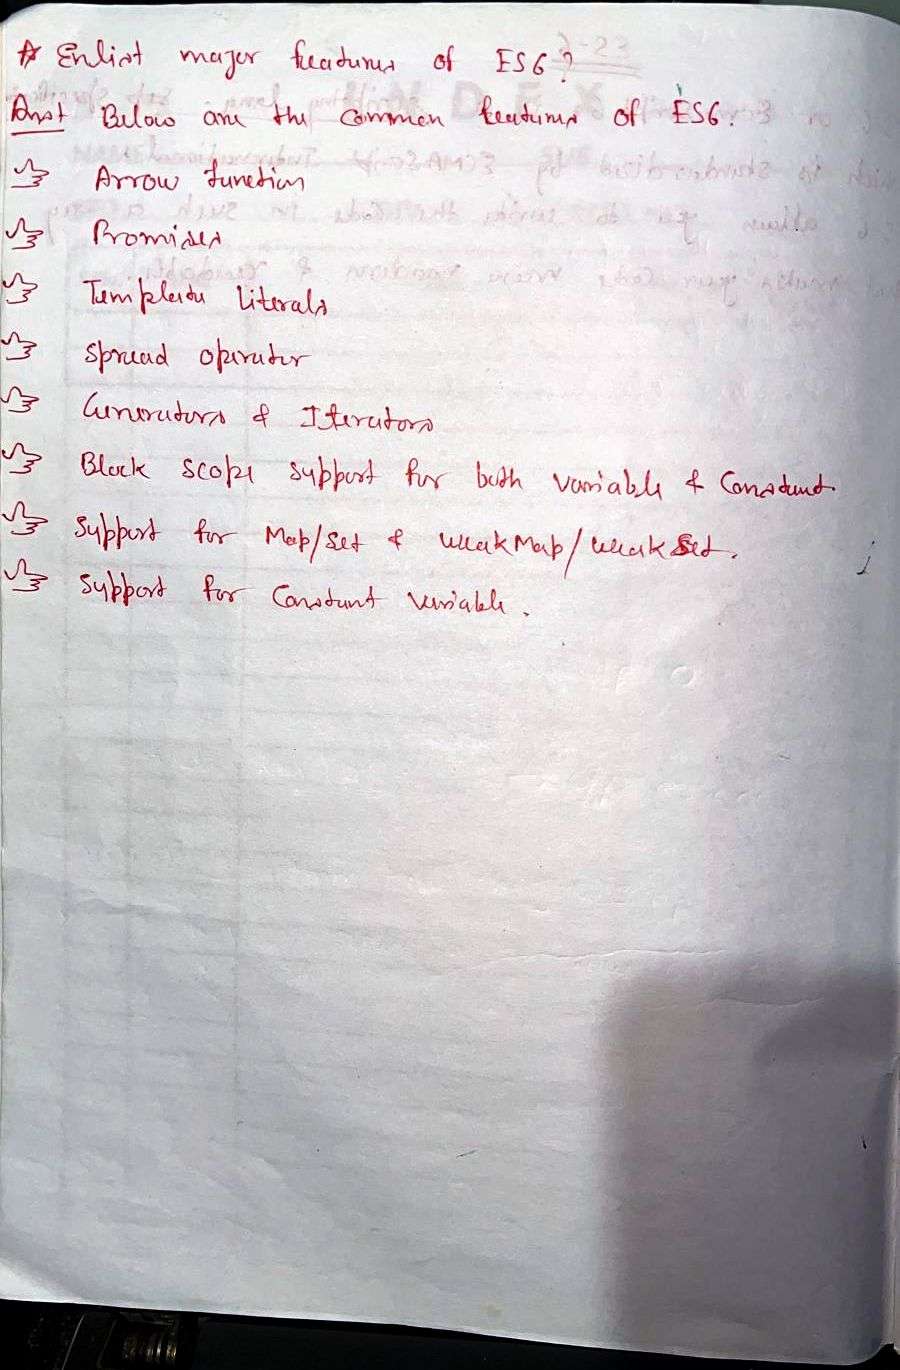 ☆ Enlist major features of ES6?
Ans↑ Below are the common features of ES6.
Arrow function
Promises
Template literals
Spread operator
Generators & Iterators
Block scope support for both variable & Constant.
Support for Map/Set & WeakMap/WeakSet.
Support for Constant variable.